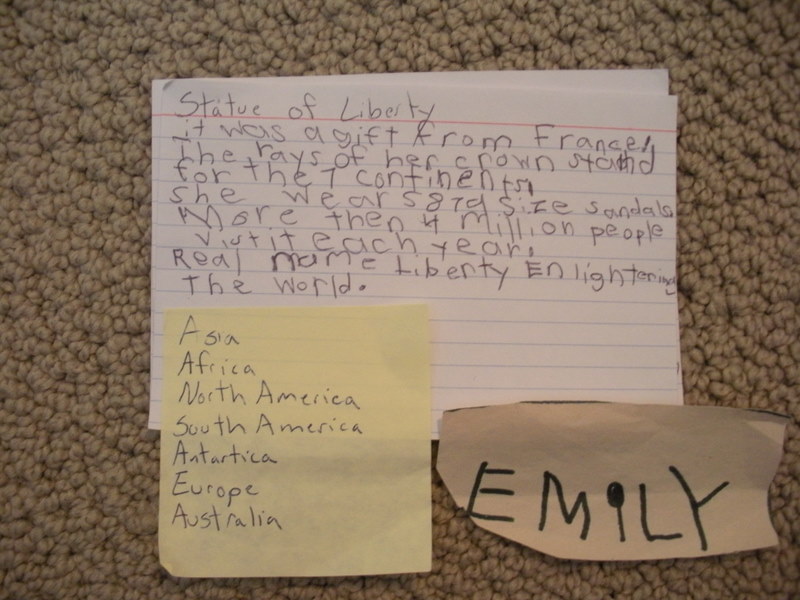 Statue of Liberty
it was a gift from France!
The rays of her crown stand
for the 7 continents,
she wears 879 size sandals
More then 4 million people
visit it each year.
Real name Liberty Enlightering
the world.
Asia
Africa
North America
South America
Antartica
Europe
Australia
EMiLY